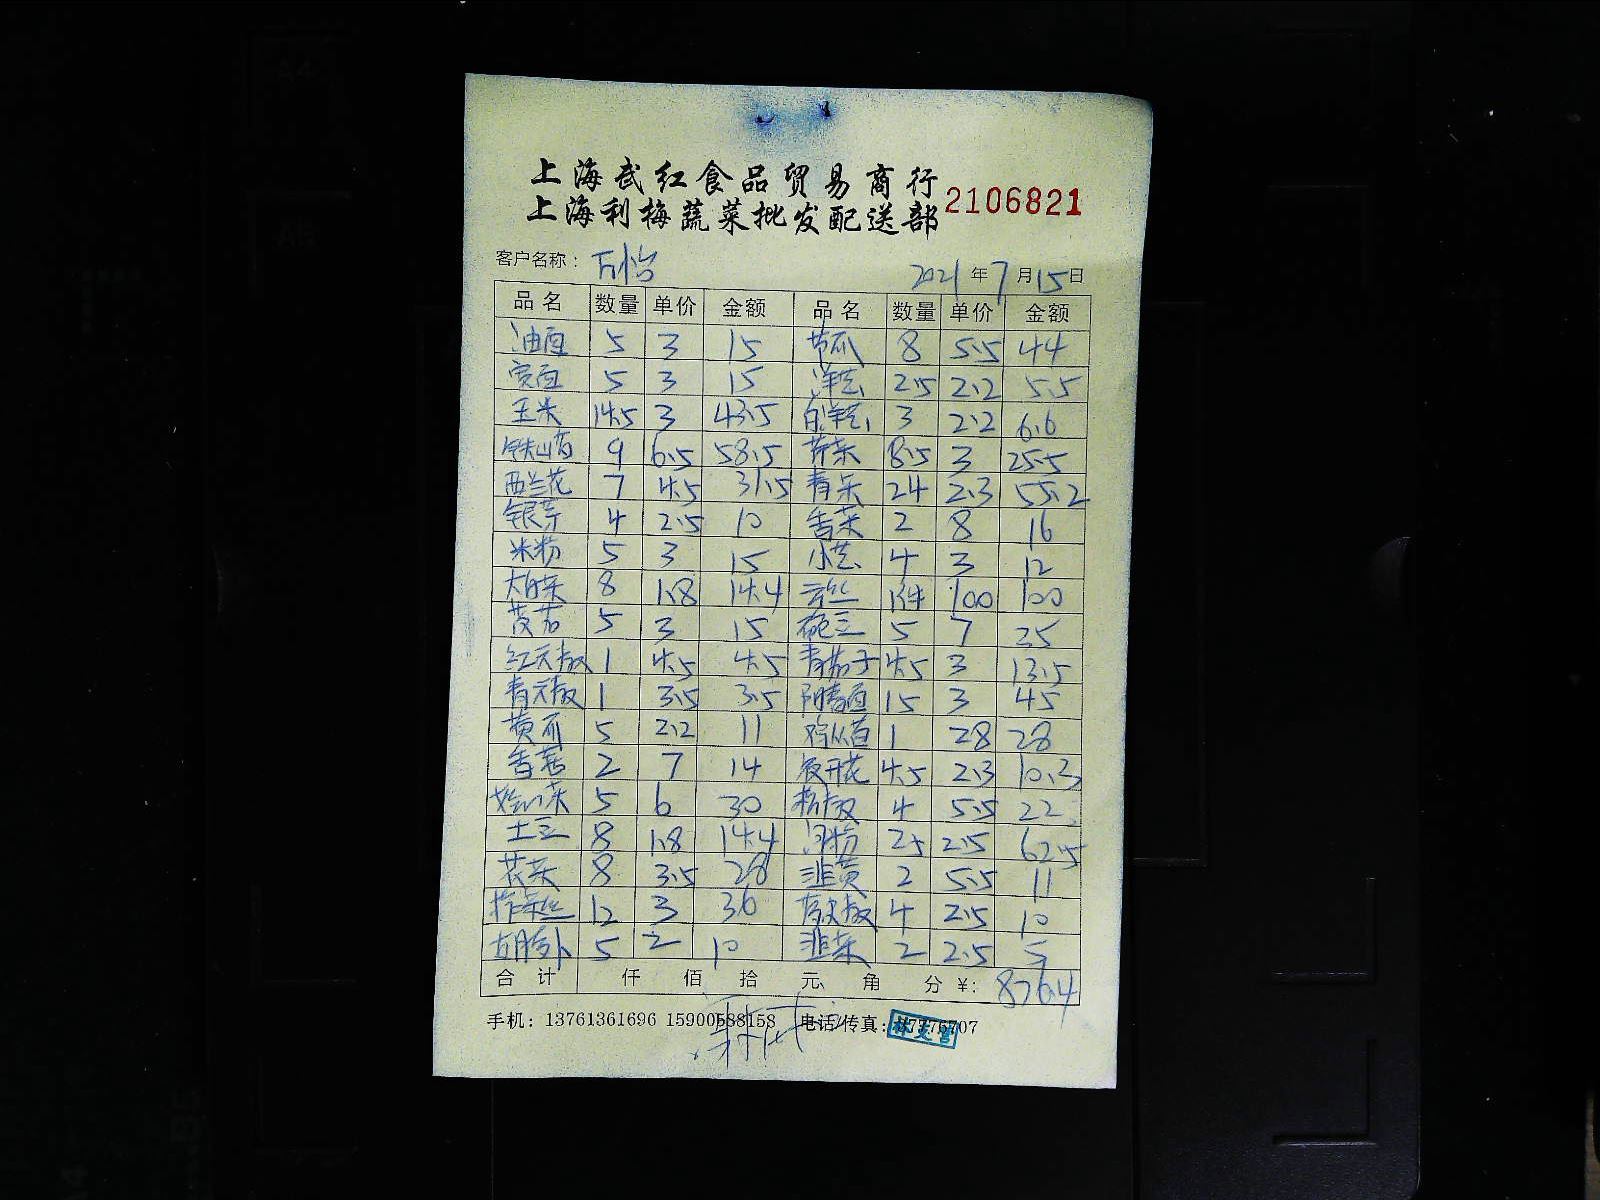 上海武红食品贸易商行
上海利梅蔬菜批发配送部 2106821
客户名称: 2021年7月15日
品名 数量 单价 金额 品名 数量 单价 金额
油面 5 3 15 节瓜 8 5.5 44
宽面 5 3 15 洋芋 2.5 2.2 5.5
玉米 14.5 3 43.5 3 2.2 6.6
铁山药 9 6.5 58.5 芹菜 8.5 3 25.5
西兰花 7 4.5 31.5 青菜 24 2.3 55.2
银芽 4 2.5 10 香菜 2 8 16
米粉 5 3 15 4 3 12
大白菜 8 1.8 14.4 云丝 1件 100 100
茭茄 5 3 15 5 7 35
红尖椒 1 4.5 4.5 青茄子 4.5 3 13.5
青尖椒 1 3.5 3.5 阳春面 15 3 45
黄瓜 5 2.2 11 1 28 28
香菇 2 7 14 夜开花 4.5 2.3 10.3
5 6 30 4 5.5 22
土豆 8 1.8 14.4 河粉 25 2.5 62.5
花菜 8 3.5 28 韭黄 2 5.5 11
榨菜丝 12 3 36 4 2.5 10
胡萝卜 5 2 10 韭菜 2 2.5 5
合计 仟 佰 拾 元 角 分 ¥: 876.4
手机: 13761361696 15900588158 电话/传真: 6707